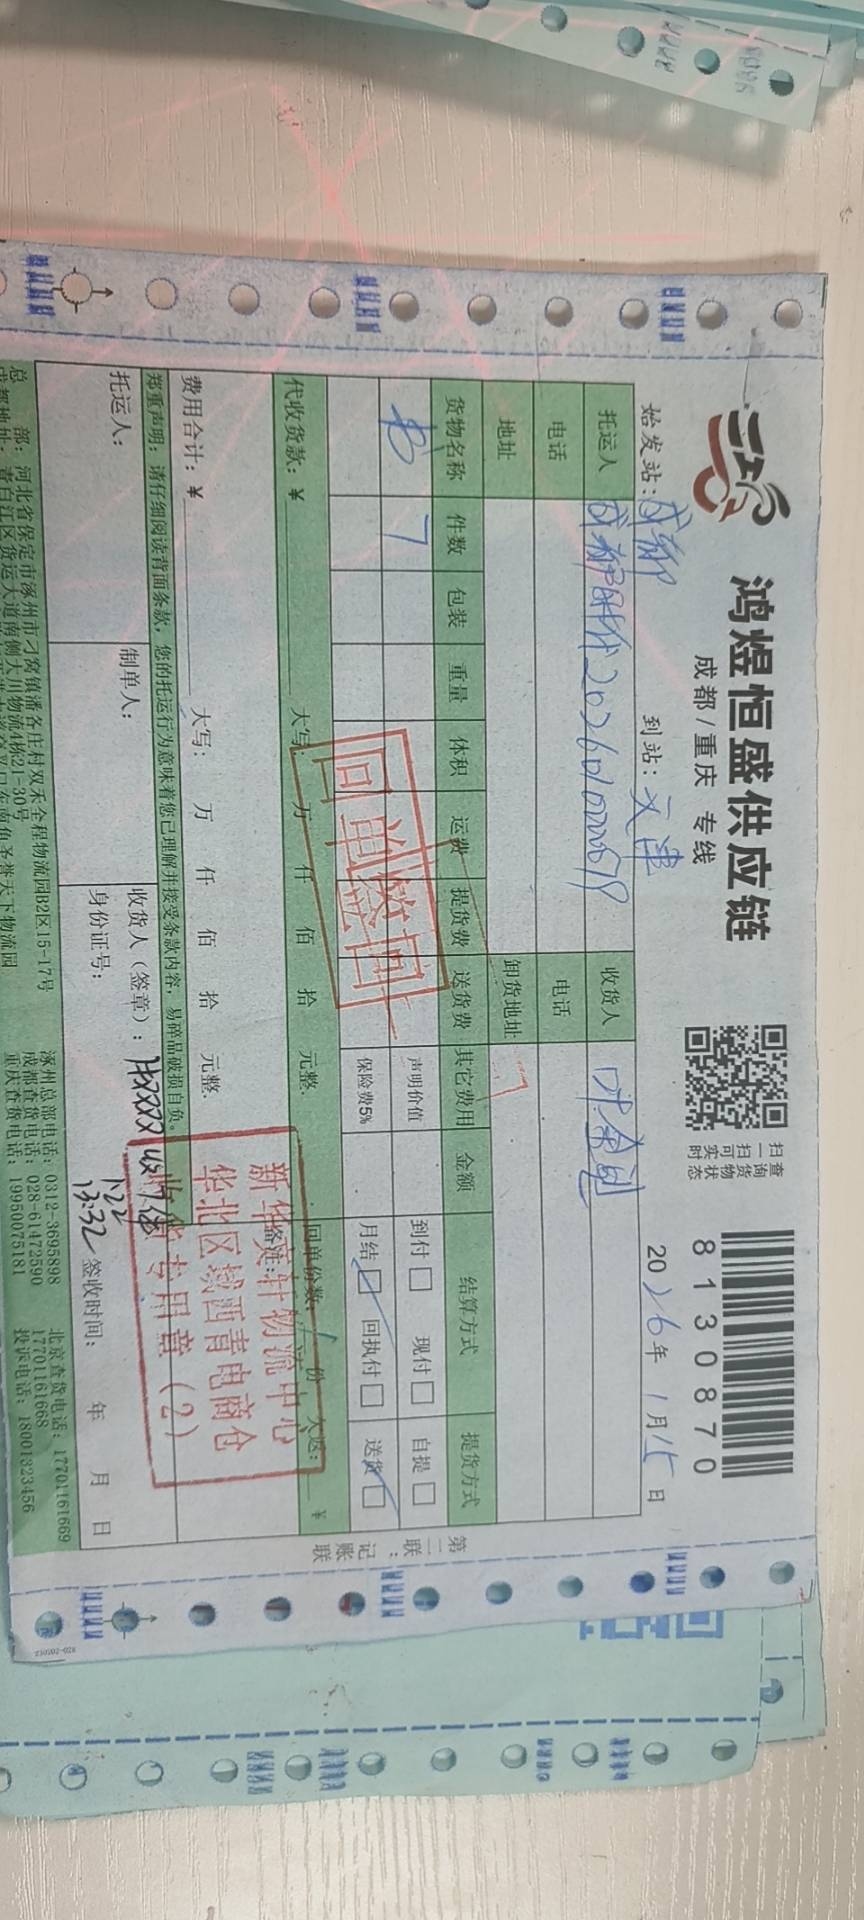 鸿煜恒盛供应链
成都/重庆 专线
扫一扫可实时
查询货物状态
8130870
始发站：成都 到站：天津 2026年1月15日
托运人 成都时代 收货人
电话 电话
地址 卸货地址
货物名称 件数 包装 重量 体积 运费 提货费 送货费 其它费用 金额 结算方式 提货方式
书 7 声明价值 到付 现付 自提
保险费5% 月结 回执付 送货
回单签回
代收货款：￥ 大写： 万 仟 佰 拾 元整. 回单份数： 份 大返： ￥
费用合计：￥ 大写： 万 仟 佰 拾 元整. 备注：
郑重声明：请仔细阅读背面条款，您的托运行为意味着您已理解并接受条款内容，易碎品破损自负。
托运人： 制单人： 收货人（签章）：
身份证号： 签收时间： 年 月 日
1.22
13:32
新华文轩物流中心
华北区域西青电商仓
收货专用章（2）
总部：河北省保定市涿州市刁窝镇潘各庄村双禾全程物流园B2区15-17号 涿州总部电话：0312-3695898 北京查货电话：17701161669
成都地址：青白江区货运大道南侧大川物流4栋21-30号 成都查货电话：028-61472590 17701161668
重庆查货电话：19950075181 投诉电话：18001323456
第二联：记账联